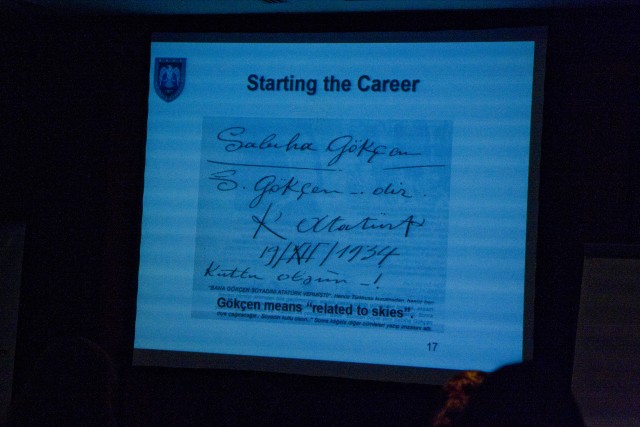 Starting the Career
Sabiha Gökçen
S. Gökçen - dir.
K. Atatürk
19/XII/1934
Kutlu olsun - !
"BANA GÖKÇEN SOYADINI ATATÜRK VERMİŞTİ".
Gökçen means "related to skies",
17